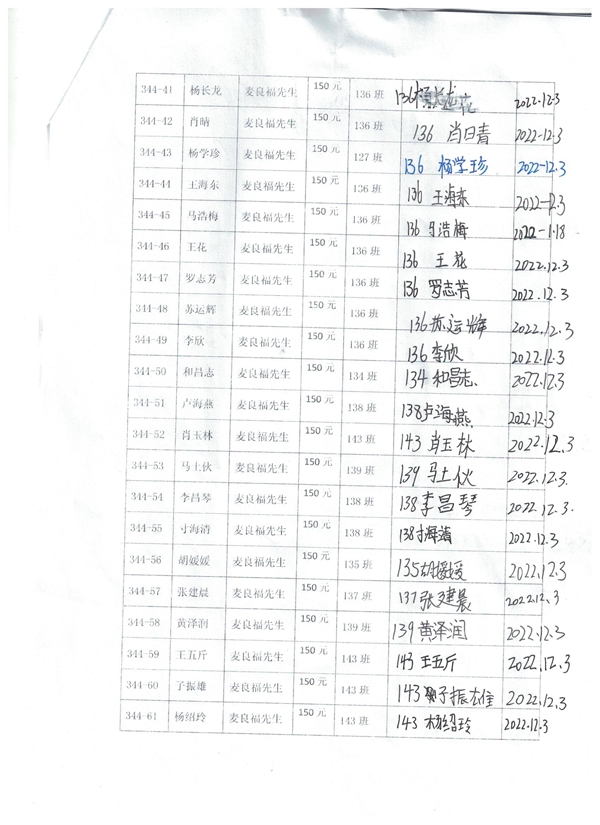 344-41 杨长龙 麦良福先生 150 元 136 班 136 2022.12.3
344-42 肖晴 麦良福先生 150 元 136 班 136 肖日青 2022-12.3
344-43 杨学珍 麦良福先生 150 元 127 班 136 杨学珍 2022-12.3
344-44 王海东 麦良福先生 150 元 136 班 136 王海东 2022-12.3
344-45 马浩梅 麦良福先生 150 元 136 班 136 马浩梅 2022-1.18
344-46 王花 麦良福先生 150 元 136 班 136 王花 2022.12.3
344-47 罗志芳 麦良福先生 150 元 136 班 136 罗志芳 2022.12.3
344-48 苏运辉 麦良福先生 150 元 136 班 136 苏运辉 2022.12.3
344-49 李欣 麦良福先生 150 元 136 班 136 李欣 2022.12.3
344-50 和昌志 麦良福先生 150 元 134 班 134 和昌志 2022.12.3
344-51 卢海燕 麦良福先生 150 元 138 班 138 卢海燕 2022.12.3
344-52 肖玉林 麦良福先生 150 元 143 班 143 肖玉林 2022.12.3
344-53 马土伙 麦良福先生 150 元 139 班 139 马土伙 2022.12.3.
344-54 李昌琴 麦良福先生 150 元 138 班 138 李昌琴 2022.12.3.
344-55 寸海清 麦良福先生 150 元 138 班 138 寸海清 2022.12.3
344-56 胡媛媛 麦良福先生 150 元 135 班 135 胡媛媛 2022.12.3
344-57 张建晨 麦良福先生 150 元 137 班 137 张建晨 2022.12.3
344-58 黄泽润 麦良福先生 150 元 139 班 139 黄泽润 2022.12.3
344-59 王五斤 麦良福先生 150 元 143 班 143 王五斤 2022.12.3
344-60 子振雄 麦良福先生 150 元 143 班 143 子振雄 2022.12.3
344-61 杨绍玲 麦良福先生 150 元 143 班 143 杨绍玲 2022.12.3